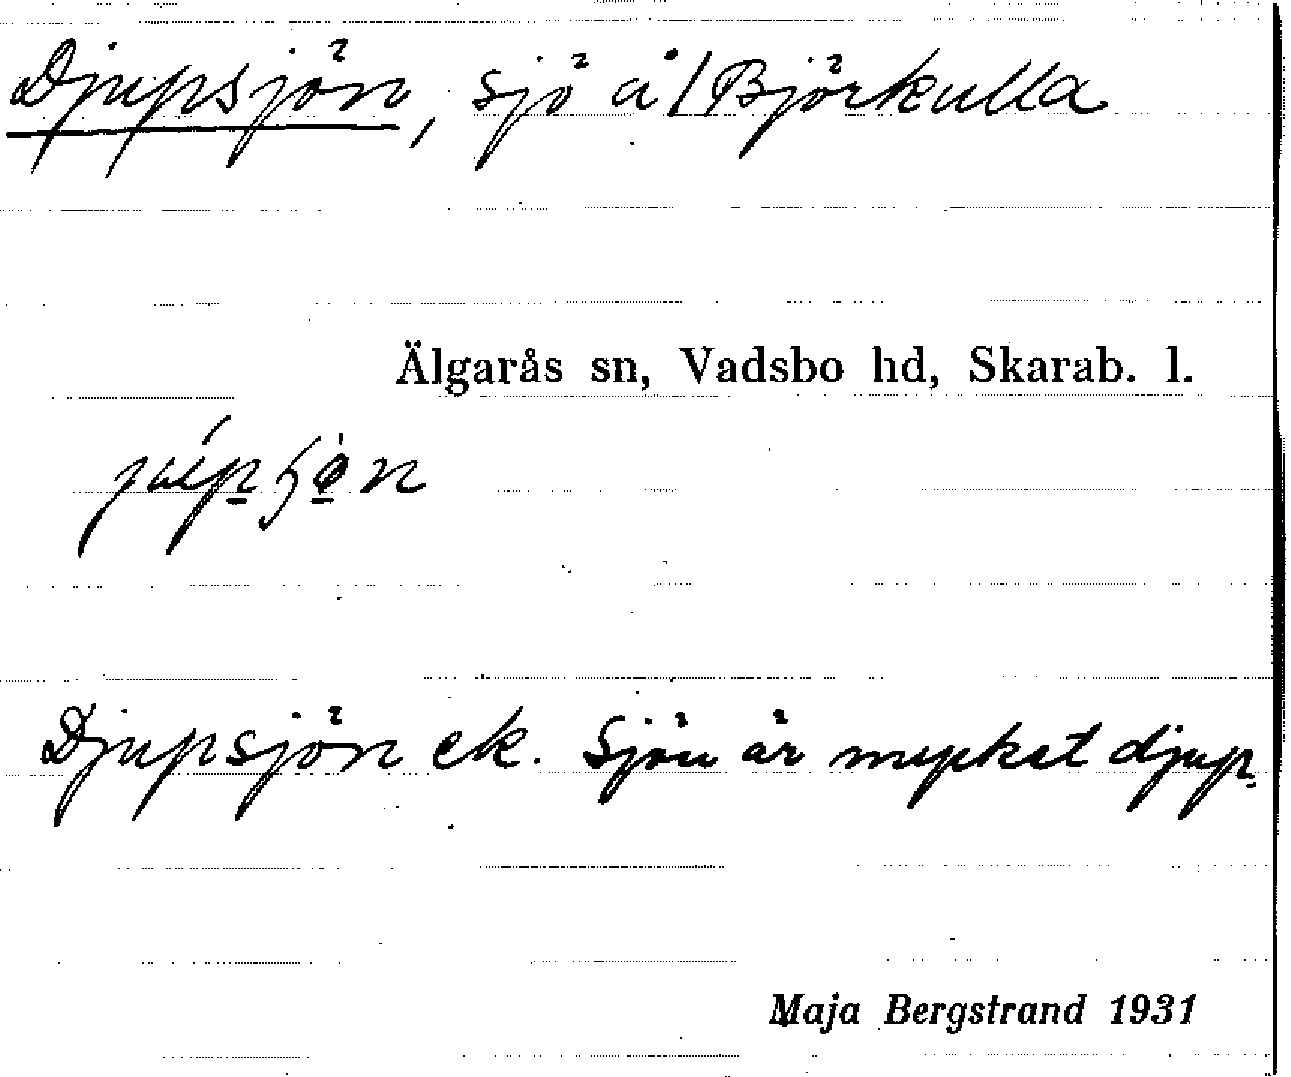 Djupsjön, sjö å/Björkulla
Älgarås sn, Vadsbo hd, Skarab. l.
Djupsjön ek. Sjön är mycket djup.
Maja Bergstrand 1931